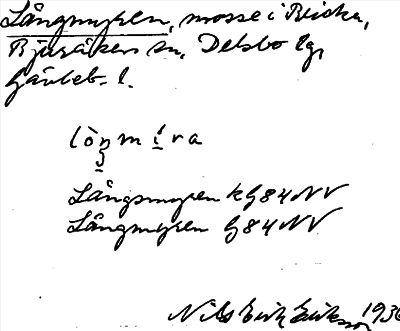 Långmyren, mosse i Bricka,
Bjuråkers sn, Delsbo tg,
Gävleb. l.
lòŋmi̱ra
Långsmyren kG84NV
Långmyren G84NV
Nils Erik Eriksson 1936